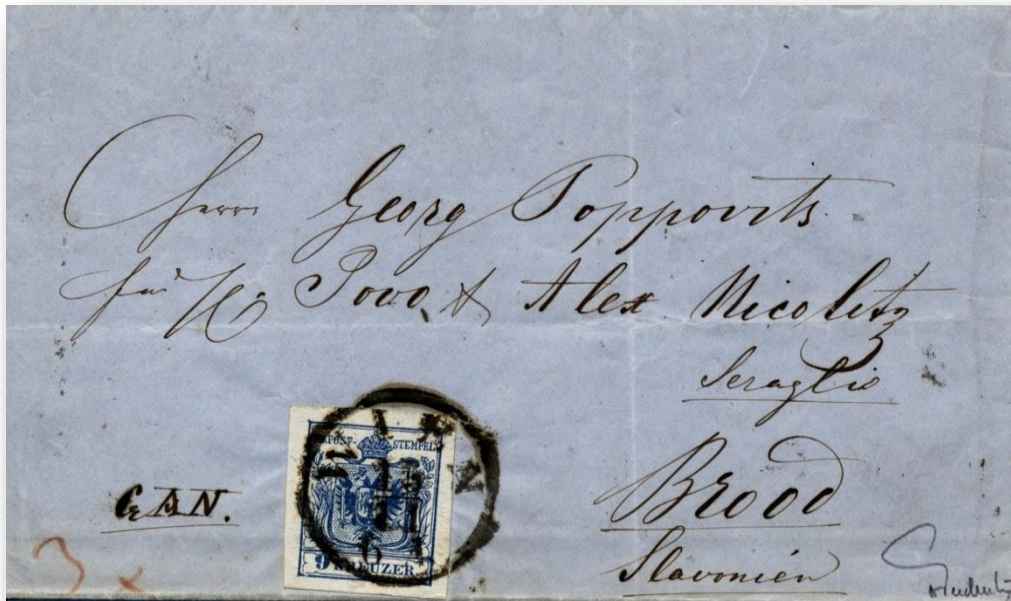 Herrn Georg Poppovits
für H. Jovo & Alex Nicolitz
Seraglio
Brood
Slavonien
C&AN.
KKPOST-STEMPEL
WIEN
9 KREUZER